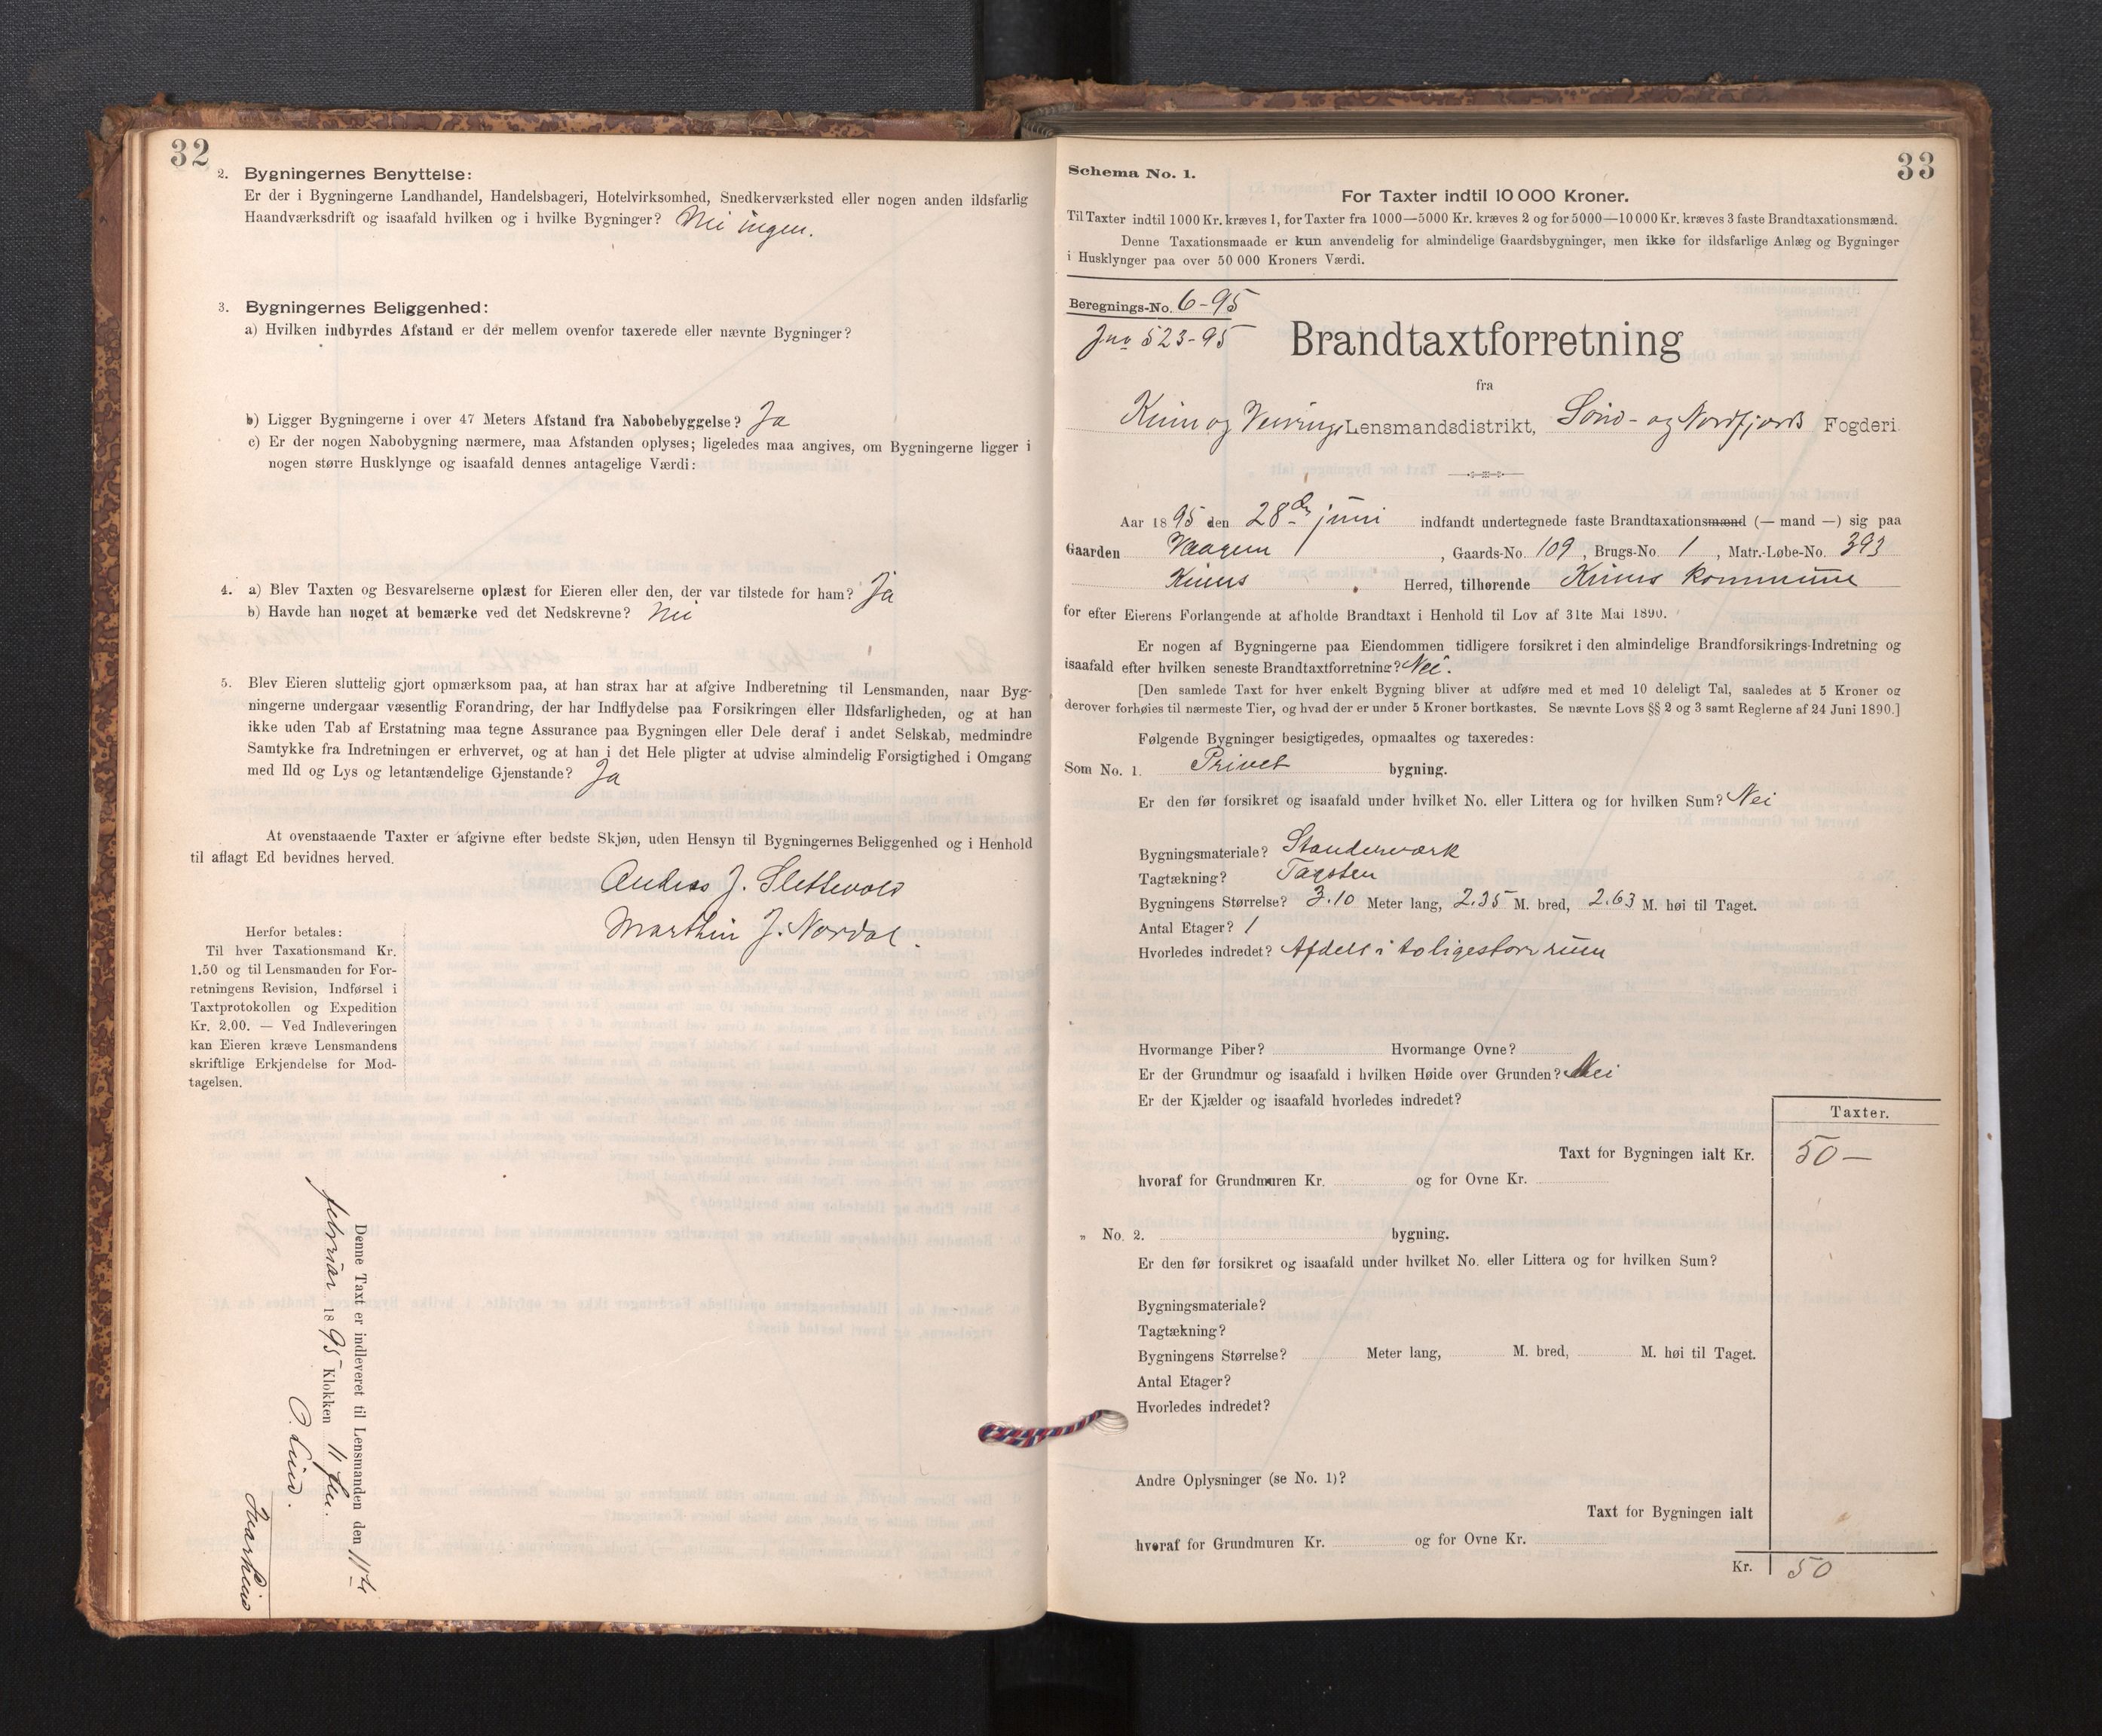 32
2. Bygningernes Benyttelse:
Er der i Bygningerne Landhandel, Handelsbageri, Hotelvirksomhed, Snedkerværksted eller nogen anden ildsfarlig
Haandværksdrift og isaafald hvilken og i hvilke Bygninger? Nei ingen.
3. Bygningernes Beliggenhed:
a) Hvilken indbyrdes Afstand er der mellem ovenfor taxerede eller nævnte Bygninger?
b) Ligger Bygningerne i over 47 Meters Afstand fra Nabobebyggelse? Ja
c) Er der nogen Nabobygning nærmere, maa Afstanden oplyses; ligeledes maa angives, om Bygningerne ligger i
nogen større Husklynge og isaafald dennes antagelige Værdi:
4. a) Blev Taxten og Besvarelserne oplæst for Eieren eller den, der var tilstede for ham? Ja
b) Havde han noget at bemærke ved det Nedskrevne? Nei
5. Blev Eieren sluttelig gjort opmærksom paa, at han strax har at afgive Indberetning til Lensmanden, naar Byg-
ningerne undergaar væsentlig Forandring, der har Indflydelse paa Forsikringen eller Ildsfarligheden, og at han
ikke uden Tab af Erstatning maa tegne Assurance paa Bygningen eller Dele deraf i andet Selskab, medmindre
Samtykke fra Indretningen er erhvervet, og at han i det Hele pligter at udvise almindelig Forsigtighed i Omgang
med Ild og Lys og letantændelige Gjenstande? Ja
At ovenstaaende Taxter er afgivne efter bedste Skjøn, uden Hensyn til Bygningernes Beliggenhed og i Henhold
til aflagt Ed bevidnes herved.
Anders J. Slettevold
Marthin J. Nordal.
Herfor betales:
Til hver Taxationsmand Kr.
1.50 og til Lensmanden for For-
retningens Revision, Indførsel i
Taxtprotokollen og Expedition
Kr. 2.00. — Ved Indleveringen
kan Eieren kræve Lensmandens
skriftlige Erkjendelse for Mod-
tagelsen.
Denne Taxt er indleveret til Lensmanden den 11te
februar 1895 Klokken 11 fm.
O. Lind.
33
Schema No. 1.
For Taxter indtil 10 000 Kroner.
Til Taxter indtil 1000 Kr. kræves 1, for Taxter fra 1000—5000 Kr. kræves 2 og for 5000—10 000 Kr. kræves 3 faste Brandtaxationsmænd.
Denne Taxationsmaade er kun anvendelig for almindelige Gaardsbygninger, men ikke for ildsfarlige Anlæg og Bygninger
i Husklynger paa over 50 000 Kroners Værdi.
Beregnings-No. 6-95
Jno 523-95
Brandtaxtforretning
fra
Kinn og Lensmandsdistrikt, Sønd- og Nordfjords Fogderi
Aar 1895 den 28de juni indfandt undertegnede faste Brandtaxationsmænd (— mand —) sig paa
Gaarden Vaagen, Gaards-No. 109, Brugs-No. 1, Matr.-Løbe-No. 393
Kinns Herred, tilhørende Kinns kommune
for efter Eierens Forlangende at afholde Brandtaxt i Henhold til Lov af 31te Mai 1890.
Er nogen af Bygningerne paa Eiendommen tidligere forsikret i den almindelige Brandforsikrings-Indretning og
isaafald efter hvilken seneste Brandtaxtforretning? Nei.
[Den samlede Taxt for hver enkelt Bygning bliver at udføre med et med 10 deleligt Tal, saaledes at 5 Kroner og
derover forhøies til nærmeste Tier, og hvad der er under 5 Kroner bortkastes. Se nævnte Lovs §§ 2 og 3 samt Reglerne af 24 Juni 1890.]
Følgende Bygninger besigtigedes, opmaaltes og taxeredes:
Som No. 1. Privet bygning.
Er den før forsikret og isaafald under hvilket No. eller Littera og for hvilken Sum? Nei
Bygningsmateriale? Standerværk
Tagtækning? Tagsten
Bygningens Størrelse? 3.10 Meter lang, 2.35 M. bred, 2.63 M. høi til Taget.
Antal Etager? 1
Hvorledes indredet? Afdelt i to ligestore rum
Hvormange Piber? Hvormange Ovne?
Er der Grundmur og isaafald i hvilken Høide over Grunden? Nei
Er der Kjælder og isaafald hvorledes indredet?
Taxter.
Taxt for Bygningen ialt Kr. 50 —
hvoraf for Grundmuren Kr. og for Ovne Kr.
„ No. 2. bygning.
Er den før forsikret og isaafald under hvilket No. eller Littera og for hvilken Sum?
Bygningsmateriale?
Tagtækning?
Bygningens Størrelse? Meter lang, M. bred, M. høi til Taget.
Antal Etager?
Hvorledes indredet?
Andre Oplysninger (se No. 1)?
Taxt for Bygningen ialt
hvoraf for Grundmuren Kr. og for Ovne Kr.
Kr. 50